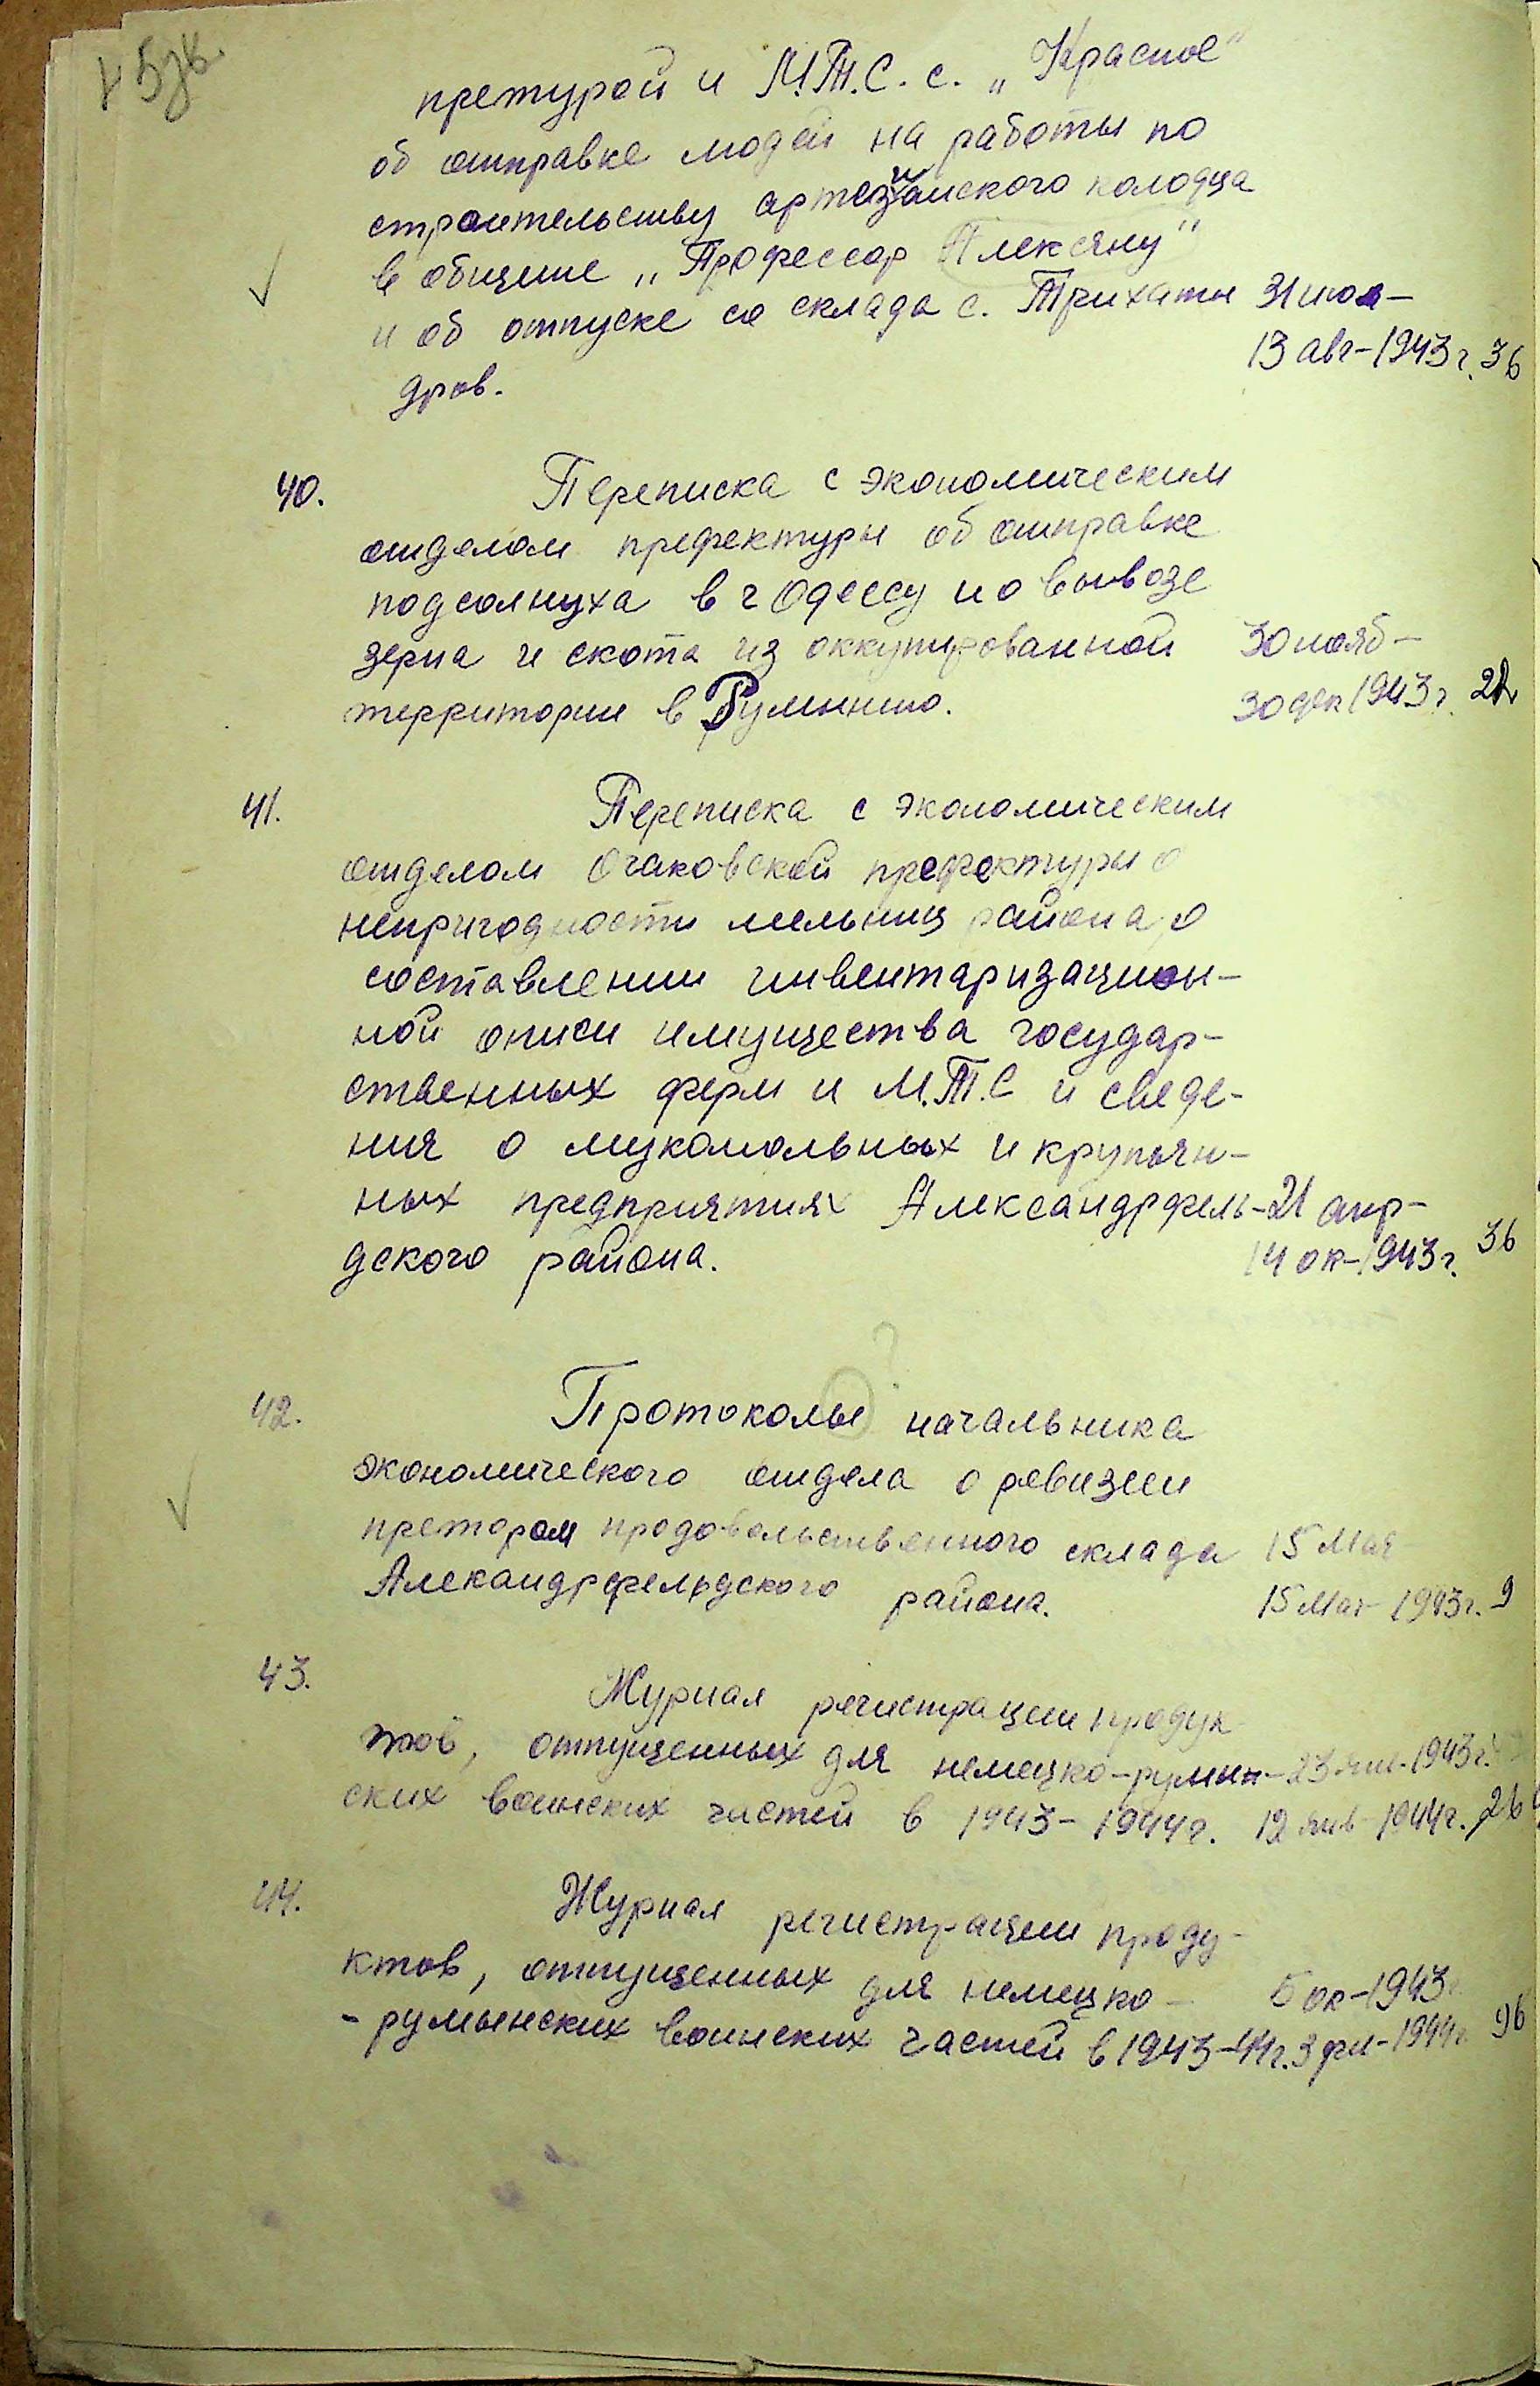 претурой и М.Т.С. с. „Красное"
об отправке людей на работы по
строительству артезианского колодца
в общине „Профессор Алексяну"
и об отпуске со склада с. Трихаты 31 июл-
13 авг-1943 г. 36
дров.
40. Переписка с экономическим
отделом префектуры об отправке
подсолнуха в г Одессу и о вывозе
зерна и скота из оккупированной 30 нояб-
территории в Румынию. 30 дек 1943 г.
41. Переписка с экономическим
отделом Очаковской префектуры о
непригодности мельниц района, о
составлении инвентаризацион-
ной описи имущества государ-
ственных ферм и М.Т.С и сведе-
ния о мукомольных и крупян-
ных предприятиях Александрфель- 21 апр-
дского района. 14 ок-1943 г. 36
42. Протоколы ? начальника
экономического отдела о ревизии
претором продовольственного склада 15 Мая
Александрфельдского района. 15 Мая 1943 г. 9
43. Журнал регистрации продук
тов, отпущенных для немецко-румын- 23 янв-1943 г.
ских воинских частей в 1943-1944 г. 12 янв-1944 г.
44. Журнал регистрации проду-
ктов, отпущенных для немецко- 5 ок-1943
-румынских воинских частей в 1943-44 г. 3 фев-1944 г 96